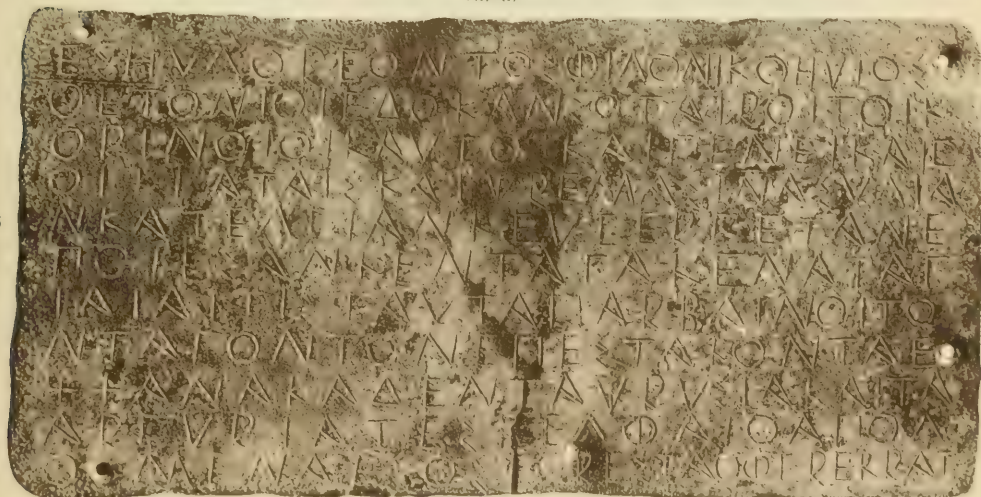 ΕΣΗΥΛΟΡΕΟΝΤΟΣΦΙΛΟΝΙΚΟΗΥΙΟΣ
ΘΕΤΟΝΙΟΙΕΔΟΚΑΝΣΟΤΑΙΡΟΙΤΟΙΚ
ΟΡΙΝΘΙΟΙΚΑΥΤΟΙΚΑΙΓΕΝΕΙΚΑΙϜ
ΟΙΚΙΑΤΑΙΣΚΑΙΧΡΕΜΑΣΙΝΑΣΥΛΙΑ
ΝΚΑΤΕΛΕΙΑΝΚΕΥϜΕΡΓΕΤΑΝΕ
ΠΟΙΕΣΑΝΚΕΝΤΑΓΑΚΕΝΑΤΑΓ
ΙΑΙΑΙΤΙΣΤΑΥΤΑΠΑΡΒΑΙΝΟΙΤΟ
ΝΤΑΓΟΝΤΟΝΕΠΕΣΤΑΚΟΝΤΑΕ
ΞΞΑΝΑΚΑΔΕΝΤΑΧΡΥΣΙΑΚΑΙΤΑ
ΑΡΓΥΡΙΑΤΕΣΒΕΛΦΑΙΟΑΠΟΛ
ΟΜΕΝΑΕΣΟΣΕΟΡΕΣΤΑΟΦΕΡΕΚΡΑΤ